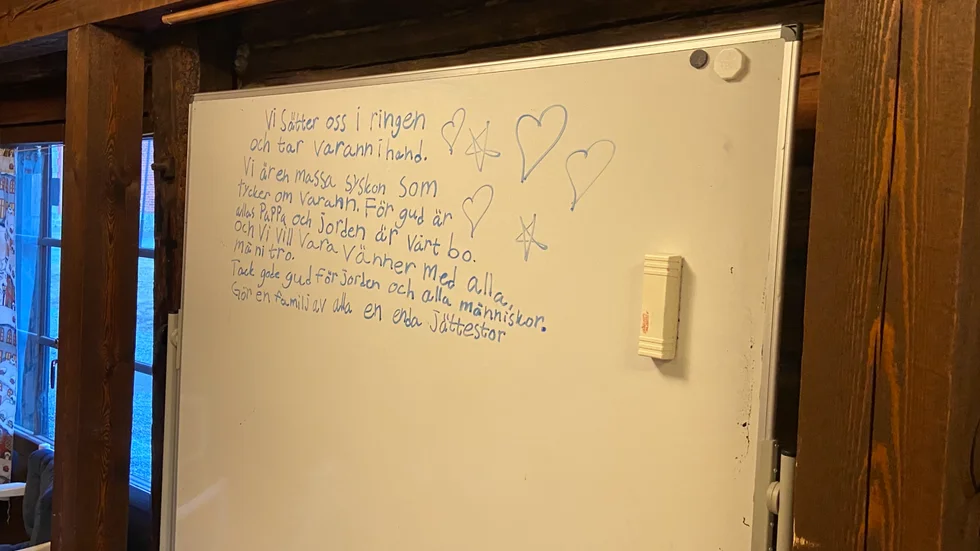 Vi Sätter oss i ringen
och tar varann i hand.
Vi är en massa syskon som
tycker om varann. För gud är
allas Pappa och jorden är vårt bo.
och vi vill vara vänner med alla,
män i tro.
Tack gode gud för jorden och alla människor.
Gör en familj av alla en enda jättestor